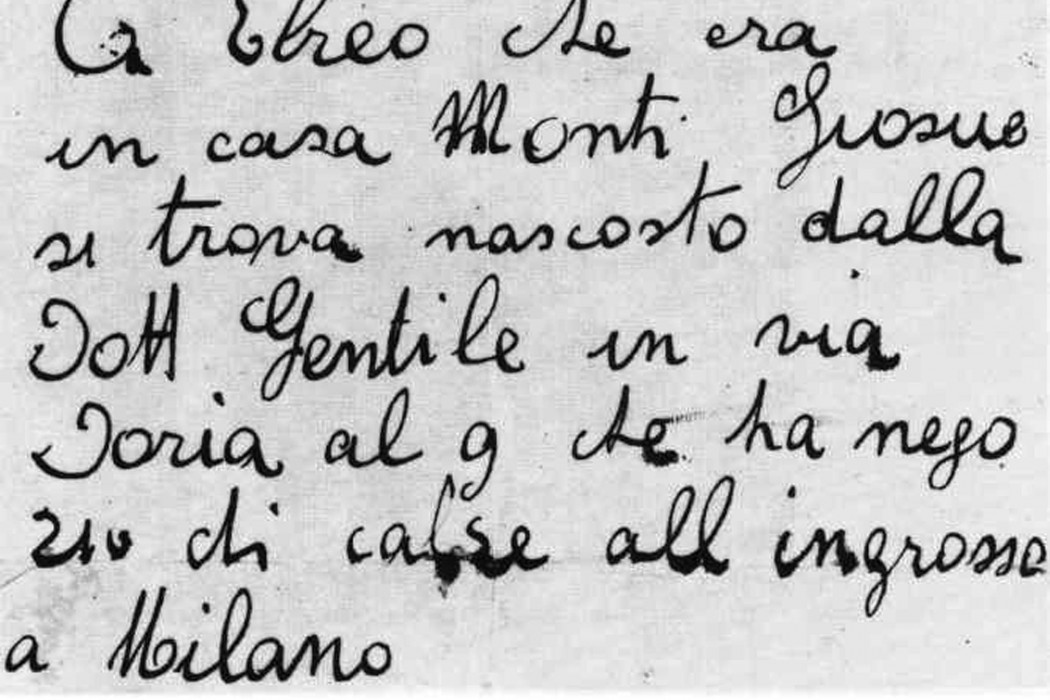 La Ebreo che era
in casa Monti Giosue
si trova nascosto dalla
Dott Gentile in via
Doria al 9 che ha nego
zio di calse all ingrosso
a Milano